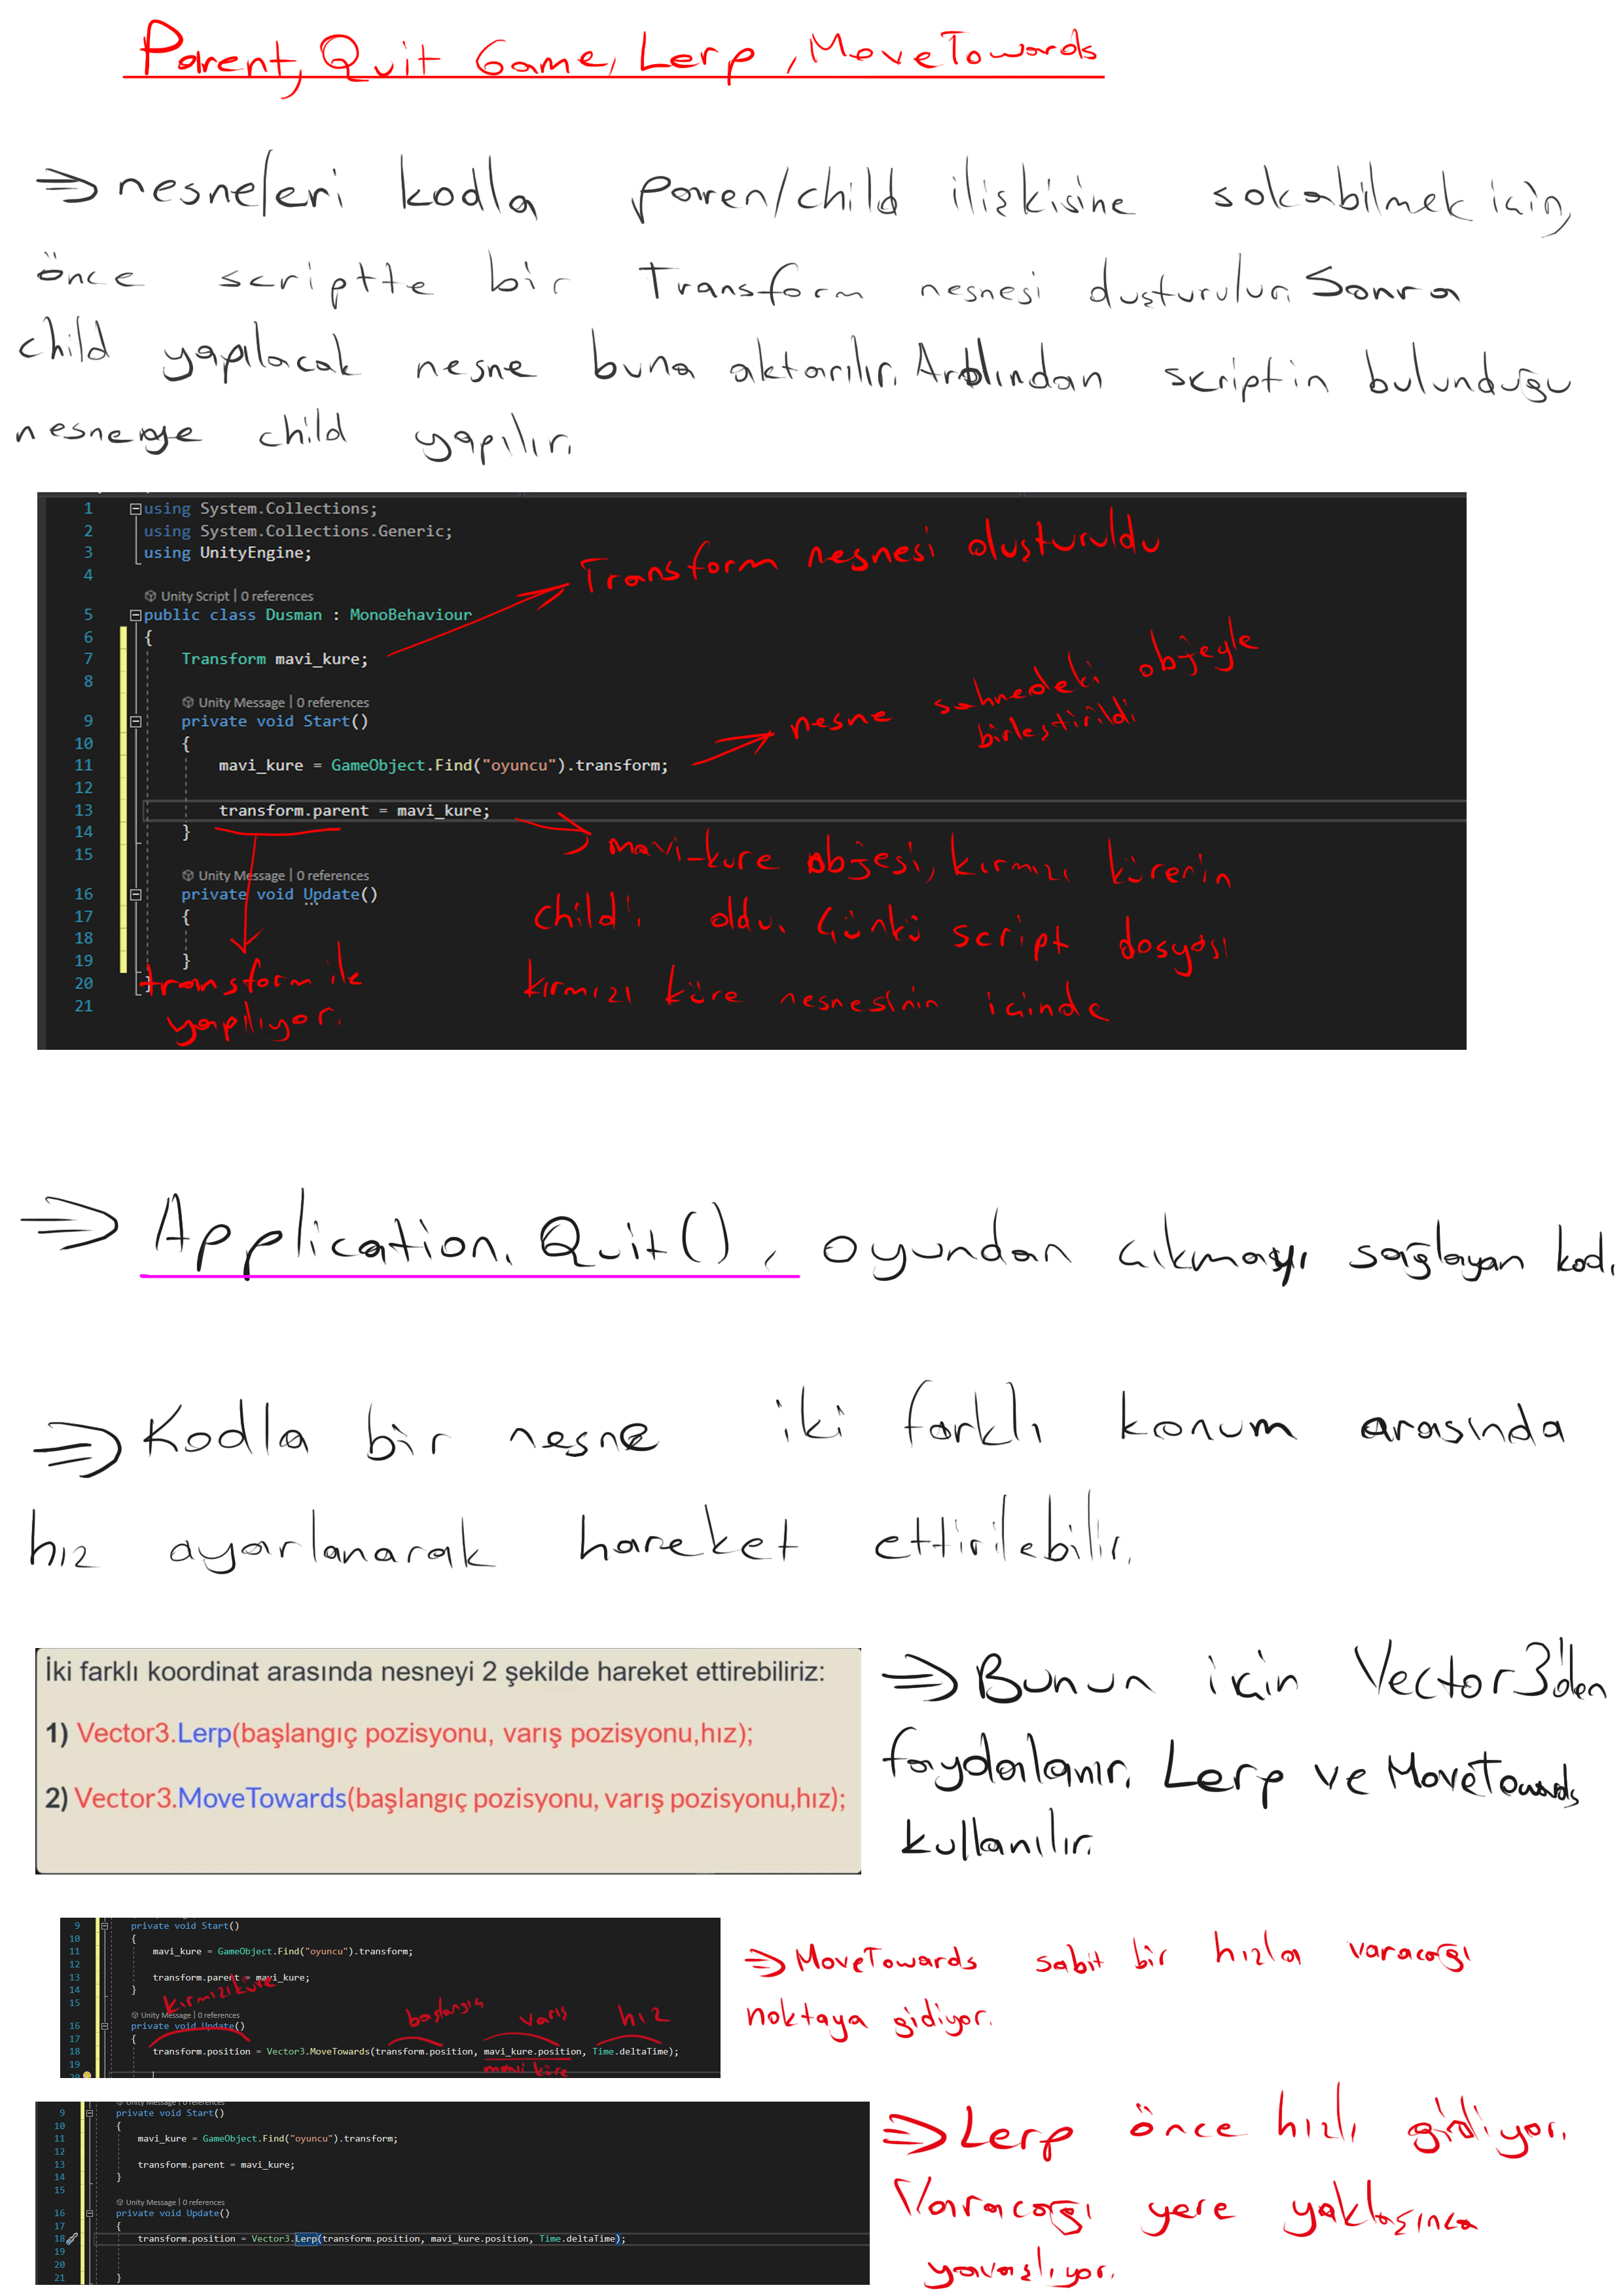 Parent, Quit Game, Lerp, MoveTowards
⇒ nesneleri kodla paren/child ilişkisine sokabilmek için,
önce scriptte bir Transform nesnesi oluşturulur. Sonra
child yapılacak nesne buna aktarılır. Ardından scriptin bulunduğu
nesneye child yapılır.
1 using System.Collections;
2 using System.Collections.Generic;
3 using UnityEngine;
4
Transform nesnesi oluşturuldu
Unity Script | 0 references
5 public class Dusman : MonoBehaviour
6 {
7 Transform mavi_kure;
8
nesne sahnedeki objeyle
birleştirildi
Unity Message | 0 references
9 private void Start()
10 {
11 mavi_kure = GameObject.Find("oyuncu").transform;
12
13 transform.parent = mavi_kure;
14 }
15
mavi_kure objesi, kırmızı kürenin
child'ı oldu. Çünkü script dosyası
kırmızı küre nesnesinin içinde
Unity Message | 0 references
16 private void Update()
17 {
18
19 }
20 }
21
transform ile
yapılıyor.
⇒ Application.Quit(), oyundan çıkmayı sağlayan kod.
⇒ Kodla bir nesne iki farklı konum arasında
hız ayarlanarak hareket ettirilebilir.
İki farklı koordinat arasında nesneyi 2 şekilde hareket ettirebiliriz:
1) Vector3.Lerp(başlangıç pozisyonu, varış pozisyonu,hız);
2) Vector3.MoveTowards(başlangıç pozisyonu, varış pozisyonu,hız);
⇒ Bunun için Vector3'den
faydalanır. Lerp ve MoveTowards
kullanılır.
9 private void Start()
10 {
11 mavi_kure = GameObject.Find("oyuncu").transform;
12
13 transform.parent = mavi_kure;
14 }
15
kırmızı küre
Unity Message | 0 references
16 private void Update()
17 {
başlangıç varış hız
18 transform.position = Vector3.MoveTowards(transform.position, mavi_kure.position, Time.deltaTime);
mavi küre
19
20
⇒ MoveTowards sabit bir hızla varacağı
noktaya gidiyor.
Unity Message | 0 references
9 private void Start()
10 {
11 mavi_kure = GameObject.Find("oyuncu").transform;
12
13 transform.parent = mavi_kure;
14 }
15
Unity Message | 0 references
16 private void Update()
17 {
18 transform.position = Vector3.Lerp(transform.position, mavi_kure.position, Time.deltaTime);
19
20
21 }
⇒ Lerp önce hızlı gidiyor.
Varacağı yere yaklaşınca
yavaşlıyor.